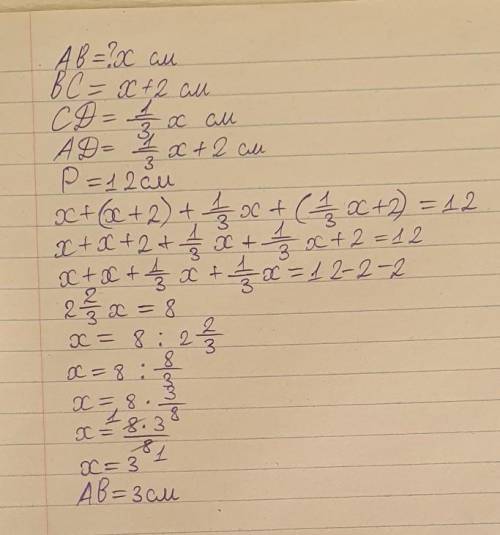 AB=?x см
BC= x+2 см
CD= 1/3 x см
AD= 1/3 x+2 см
P=12см
x+(x+2)+1/3 x+(1/3 x+2)=12
x+x+2+1/3 x+1/3 x+2=12
x+x+1/3 x+1/3 x=12-2-2
2 2/3 x=8
x= 8 : 2 2/3
x=8 : 8/3
x= 8 · 3/8
x= 1 8·3/8 1
x=3
AB=3см